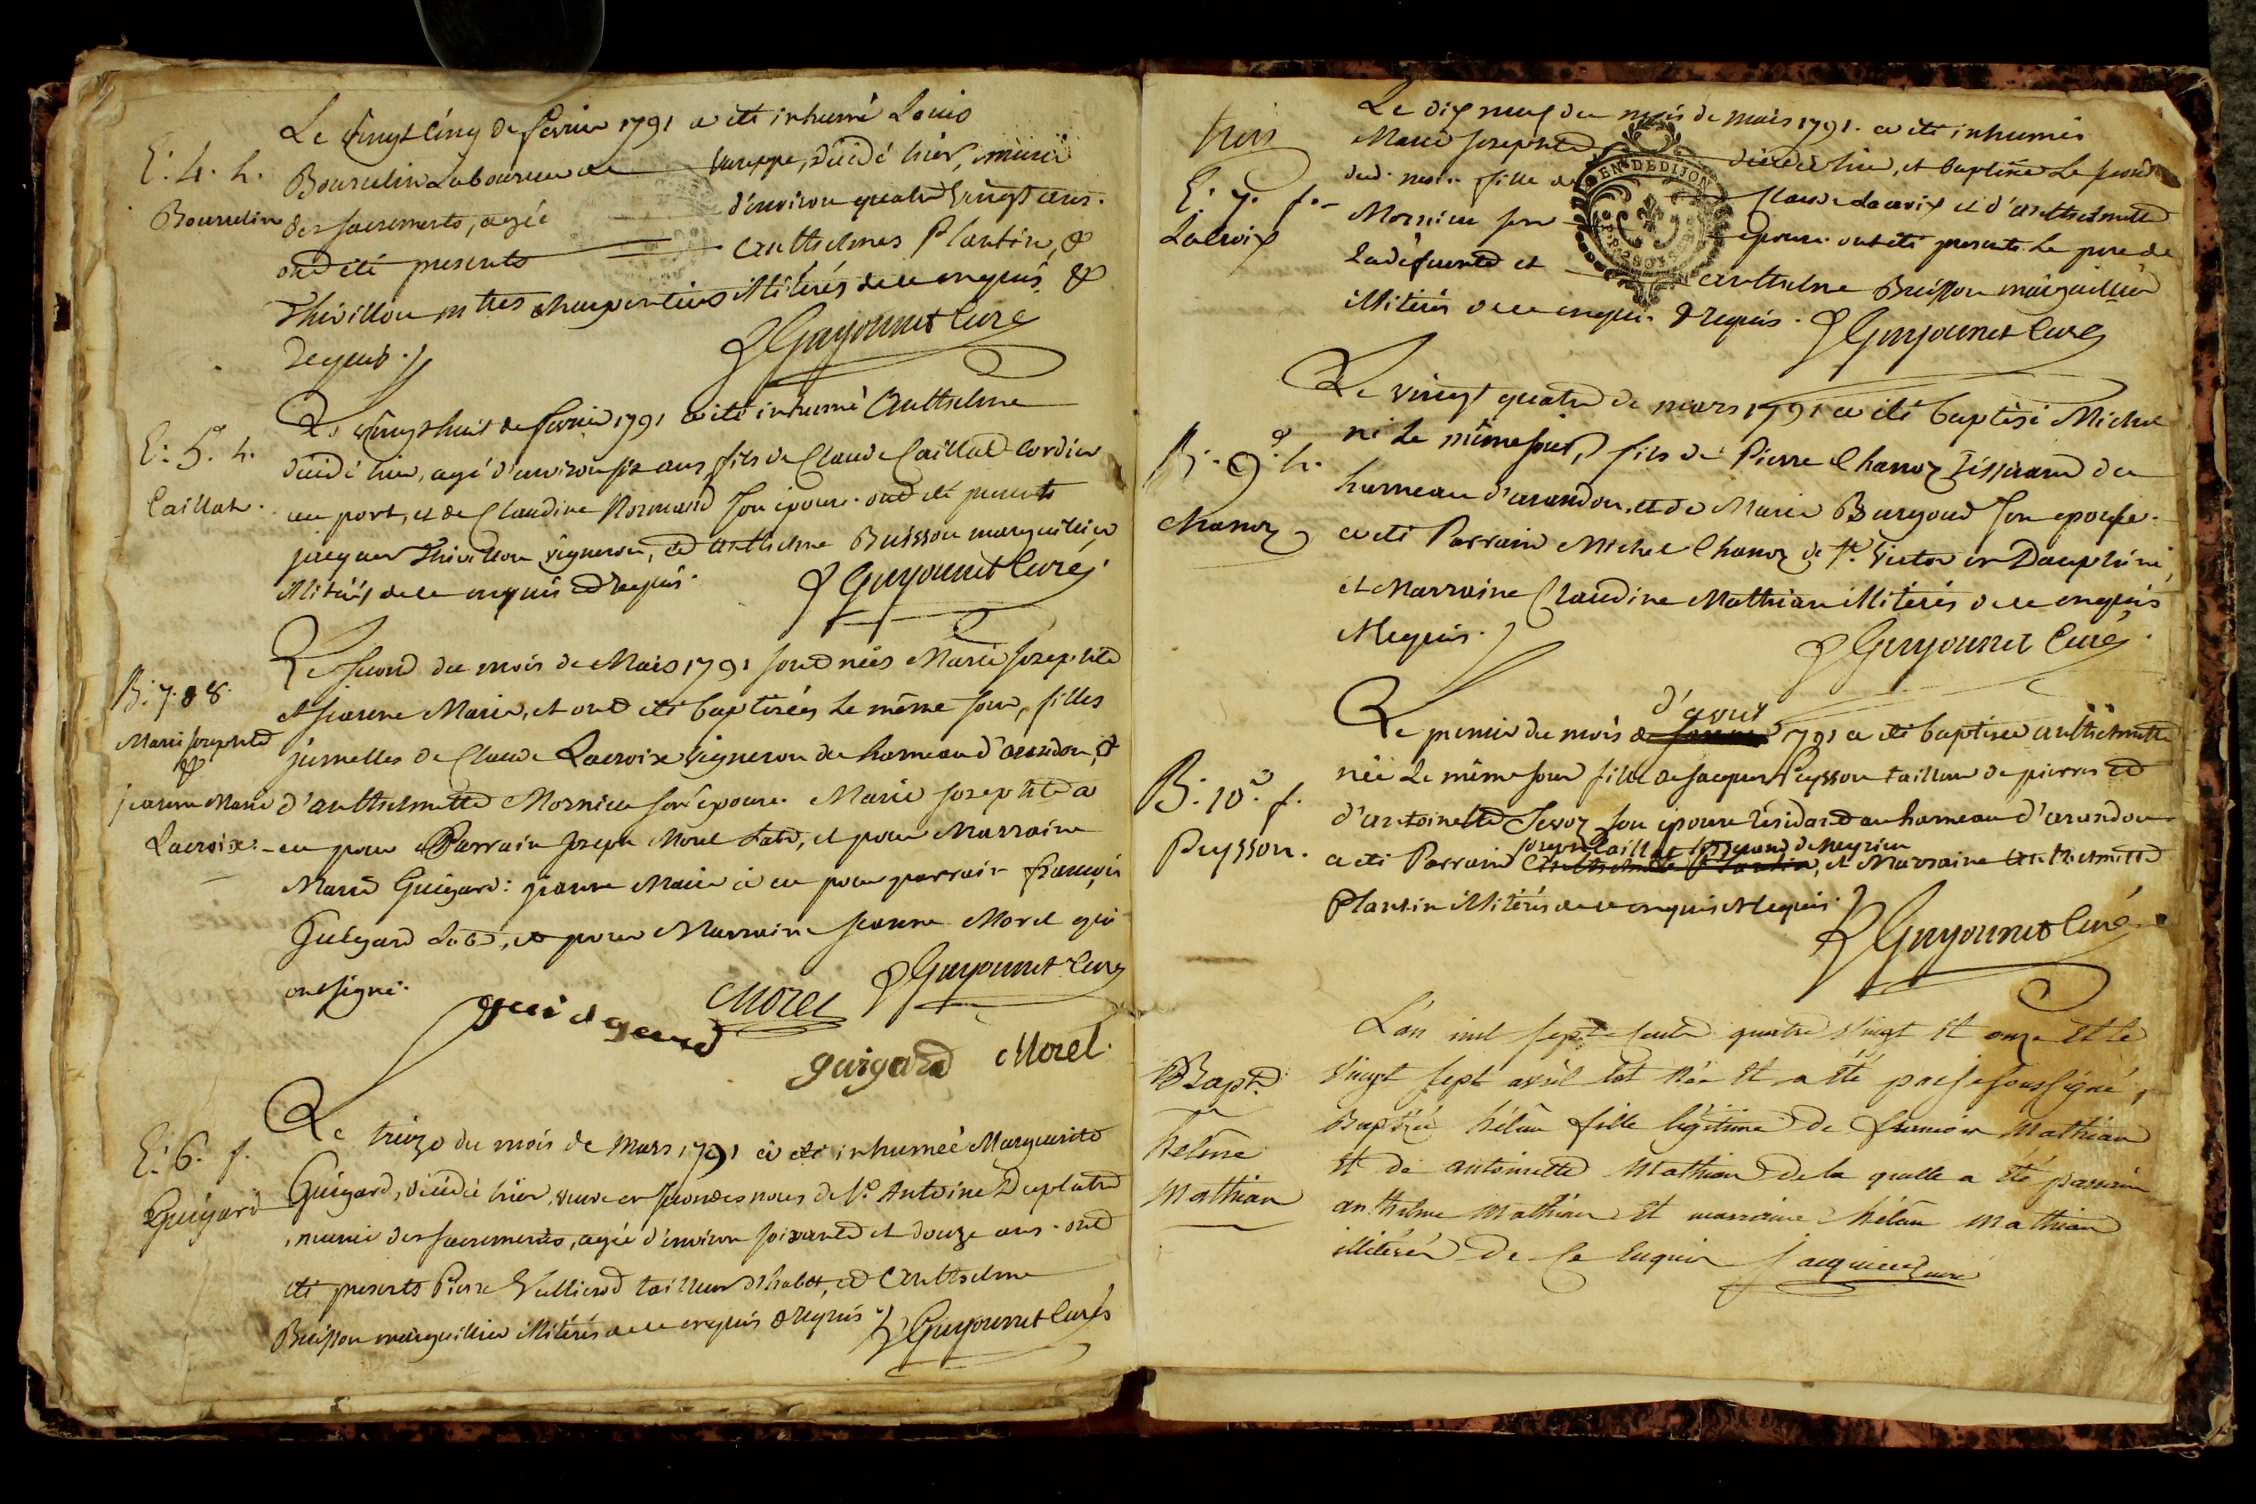 Le vingt cinq de fevrier 1791 a été inhumé Louis
E: 4. h. Bourselin Laboureur de décédé hier, muni
Bourselin des sacrements, agée d'environ quatre vingt ans.
ont été presents Anthelmes Plantin, &
Thivillon mtres charpentiers illitérés de ce enquis &
requis.
P Guyonnet Curé
Le vingt huit de fevrier 1791 a été inhumé Anthelme
E: 5. h. décédé hier, agé d'environ six ans fils de Claude Caillat cordier
Caillat. au port, et de Claudine Normand son epouse. ont été presents
jacques Thivillon vigneron, et Anthelme Buisson marguillier
illitérés de ce enquis et requis.
P Guyonnet Curé
Le second du mois de Mars 1791 sont nées Marie Josephte
B: 7. & 8. et jeanne Marie, et ont été baptisées le même jour, filles
Marie Josephte jumelles de Claude Lacroix vigneron du hameau d'arandon, &
&
jeanne Marie d'anthelmette Mornieu son epouse. Marie Josephte a
Lacroix. eu pour Parrain Joseph Morel, et pour Marraine
Marie Guigard: jeanne Marie a eu pour parrain françois
Guigard, et pour Marraine Jeanne Morel qui
ont signé.
P Guyonnet Curé
guidgard Morel
guigard Morel.
Le treize du mois de Mars 1791 a été inhumée Marguerite
E: 6. f. Guigard, décédée hier, veuve en secondes noces de Antoine Duplatre
Guigard munie des sacrements, agée d'environ soixante et douze ans. ont
été presents Pierre Vullierod tailleur d'habet, et Anthelme
Buisson marguillier illitérés de ce enquis & requis
P Guyonnet Curé
Le dix neuf du mois de mars 1791. a été inhumée
trois Marie Josephte décédée hier, et baptisée le second
E: 7. f. dud. mois fille de Claude Lacroix et d'anthelmette
Lacroix Mornieu son epouse. ont été presents le pere de
La défunte et anthelme Buisson marguillier
illitérés de ce enquis & requis. P Guyonnet Curé
EN DEDIJON
Le vingt quatre de mars 1791 a été baptisé Michel
B: 9. h. né le même jour, fils de Pierre Chanoz Tisserand du
Chanoz hameau d'arandon, et de Marie Burgoud son epouse.
a été Parrain Michel Chanoz de St. Victor en Dauphiné,
et Marraine Claudine Mathian illitérés de ce enquis
& requis.
P Guyonnet Curé
d'avril
Le premier du mois de 1791 a été baptisée anthelmette
B: 10. f. née le même jour fille de Jacques Peysson tailleur de pierres et
Peysson. d'antoinette Jevoz son epouse résidant au hameau d'arandon
joseph Caillat tisserand de meyrieu
a été Parrain Anthelme Plantin, et Marraine Anthelmette
Plantin illitérés de ce enquis & requis.
P Guyonnet Curé
L'an mil sept cents quatre vingt et onze et le
Bapt. vingt sept avril est née et a été par je soussigné,
helene Baptisée hélène fille légitime de Mathian
Mathian et de antoinette Mathian de la quelle a été parrain
anthelme Mathian et marraine hélène Mathian
illitérés de ce Enquis Jacquier curé